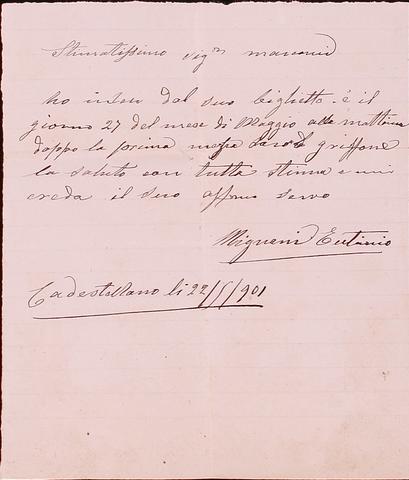 Stimatissimo sigre marconi
ho inteso dal suo biglietto é il
giorno 27 del mese di Maggio alla mattina
doppo la prima messa sarò griffone
la saluto con tutta stima e mi
creda il suo affmo servo
Mignani Eutimio
Cadestellano li 22/5/901